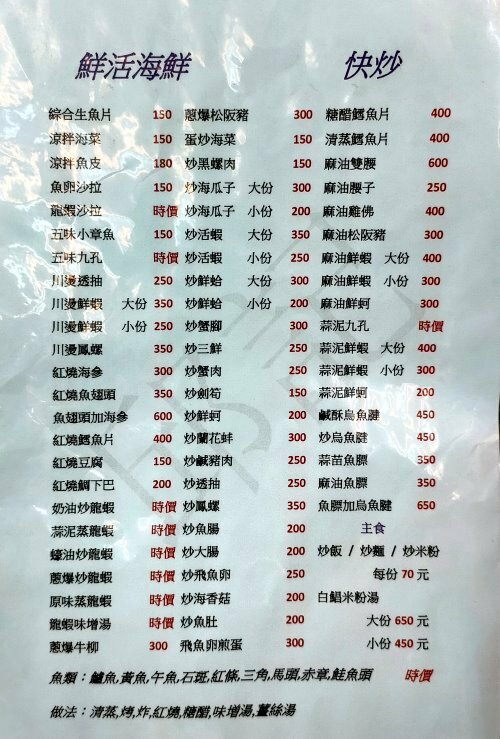 鮮活海鮮 快炒
綜合生魚片 150 蔥爆松阪豬 300 糖醋鱈魚片 400
涼拌海菜 150 蛋炒海菜 150 清蒸鱈魚片 400
涼拌魚皮 180 炒黑螺肉 150 麻油雙腰 600
魚卵沙拉 150 炒海瓜子 大份 300 麻油腰子 250
龍蝦沙拉 時價 炒海瓜子 小份 200 麻油雞佛 400
五味小章魚 150 炒活蝦 大份 350 麻油松阪豬 300
五味九孔 時價 炒活蝦 小份 250 麻油鮮蝦 大份 400
川燙透抽 250 炒鮮蛤 大份 300 麻油鮮蝦 小份 300
川燙鮮蝦 大份 350 炒鮮蛤 小份 200 麻油鮮蚵 300
川燙鮮蝦 小份 250 炒蟹腳 300 蒜泥九孔 時價
川燙鳳螺 350 炒三鮮 250 蒜泥鮮蝦 大份 400
紅燒海參 300 炒蟹肉 250 蒜泥鮮蝦 小份 300
紅燒魚翅頭 350 炒劍筍 150 蒜泥鮮蚵 200
魚翅頭加海參 600 炒鮮蚵 200 鹹酥烏魚腱 450
紅燒鱈魚片 400 炒蘭花蚌 300 炒烏魚腱 450
紅燒豆腐 150 炒鹹豬肉 250 蒜苗魚膘 350
紅燒鯛下巴 200 炒透抽 250 麻油魚膘 350
奶油炒龍蝦 時價 炒鳳螺 350 魚膘加烏魚腱 650
蒜泥蒸龍蝦 時價 炒魚腸 200 主食
蠔油炒龍蝦 時價 炒大腸 200 炒飯 / 炒麵 / 炒米粉
蔥爆炒龍蝦 時價 炒飛魚卵 250 每份 70 元
原味蒸龍蝦 時價 炒海香菇 200 白鯧米粉湯
龍蝦味增湯 時價 炒魚肚 200 大份 650 元
蔥爆牛柳 300 飛魚卵煎蛋 300 小份 450 元
魚類：鱸魚,黃魚,午魚,石斑,紅條,三角,馬頭,赤章,鮭魚頭 時價
做法：清蒸,烤,炸,紅燒,糖醋,味增湯,薑絲湯